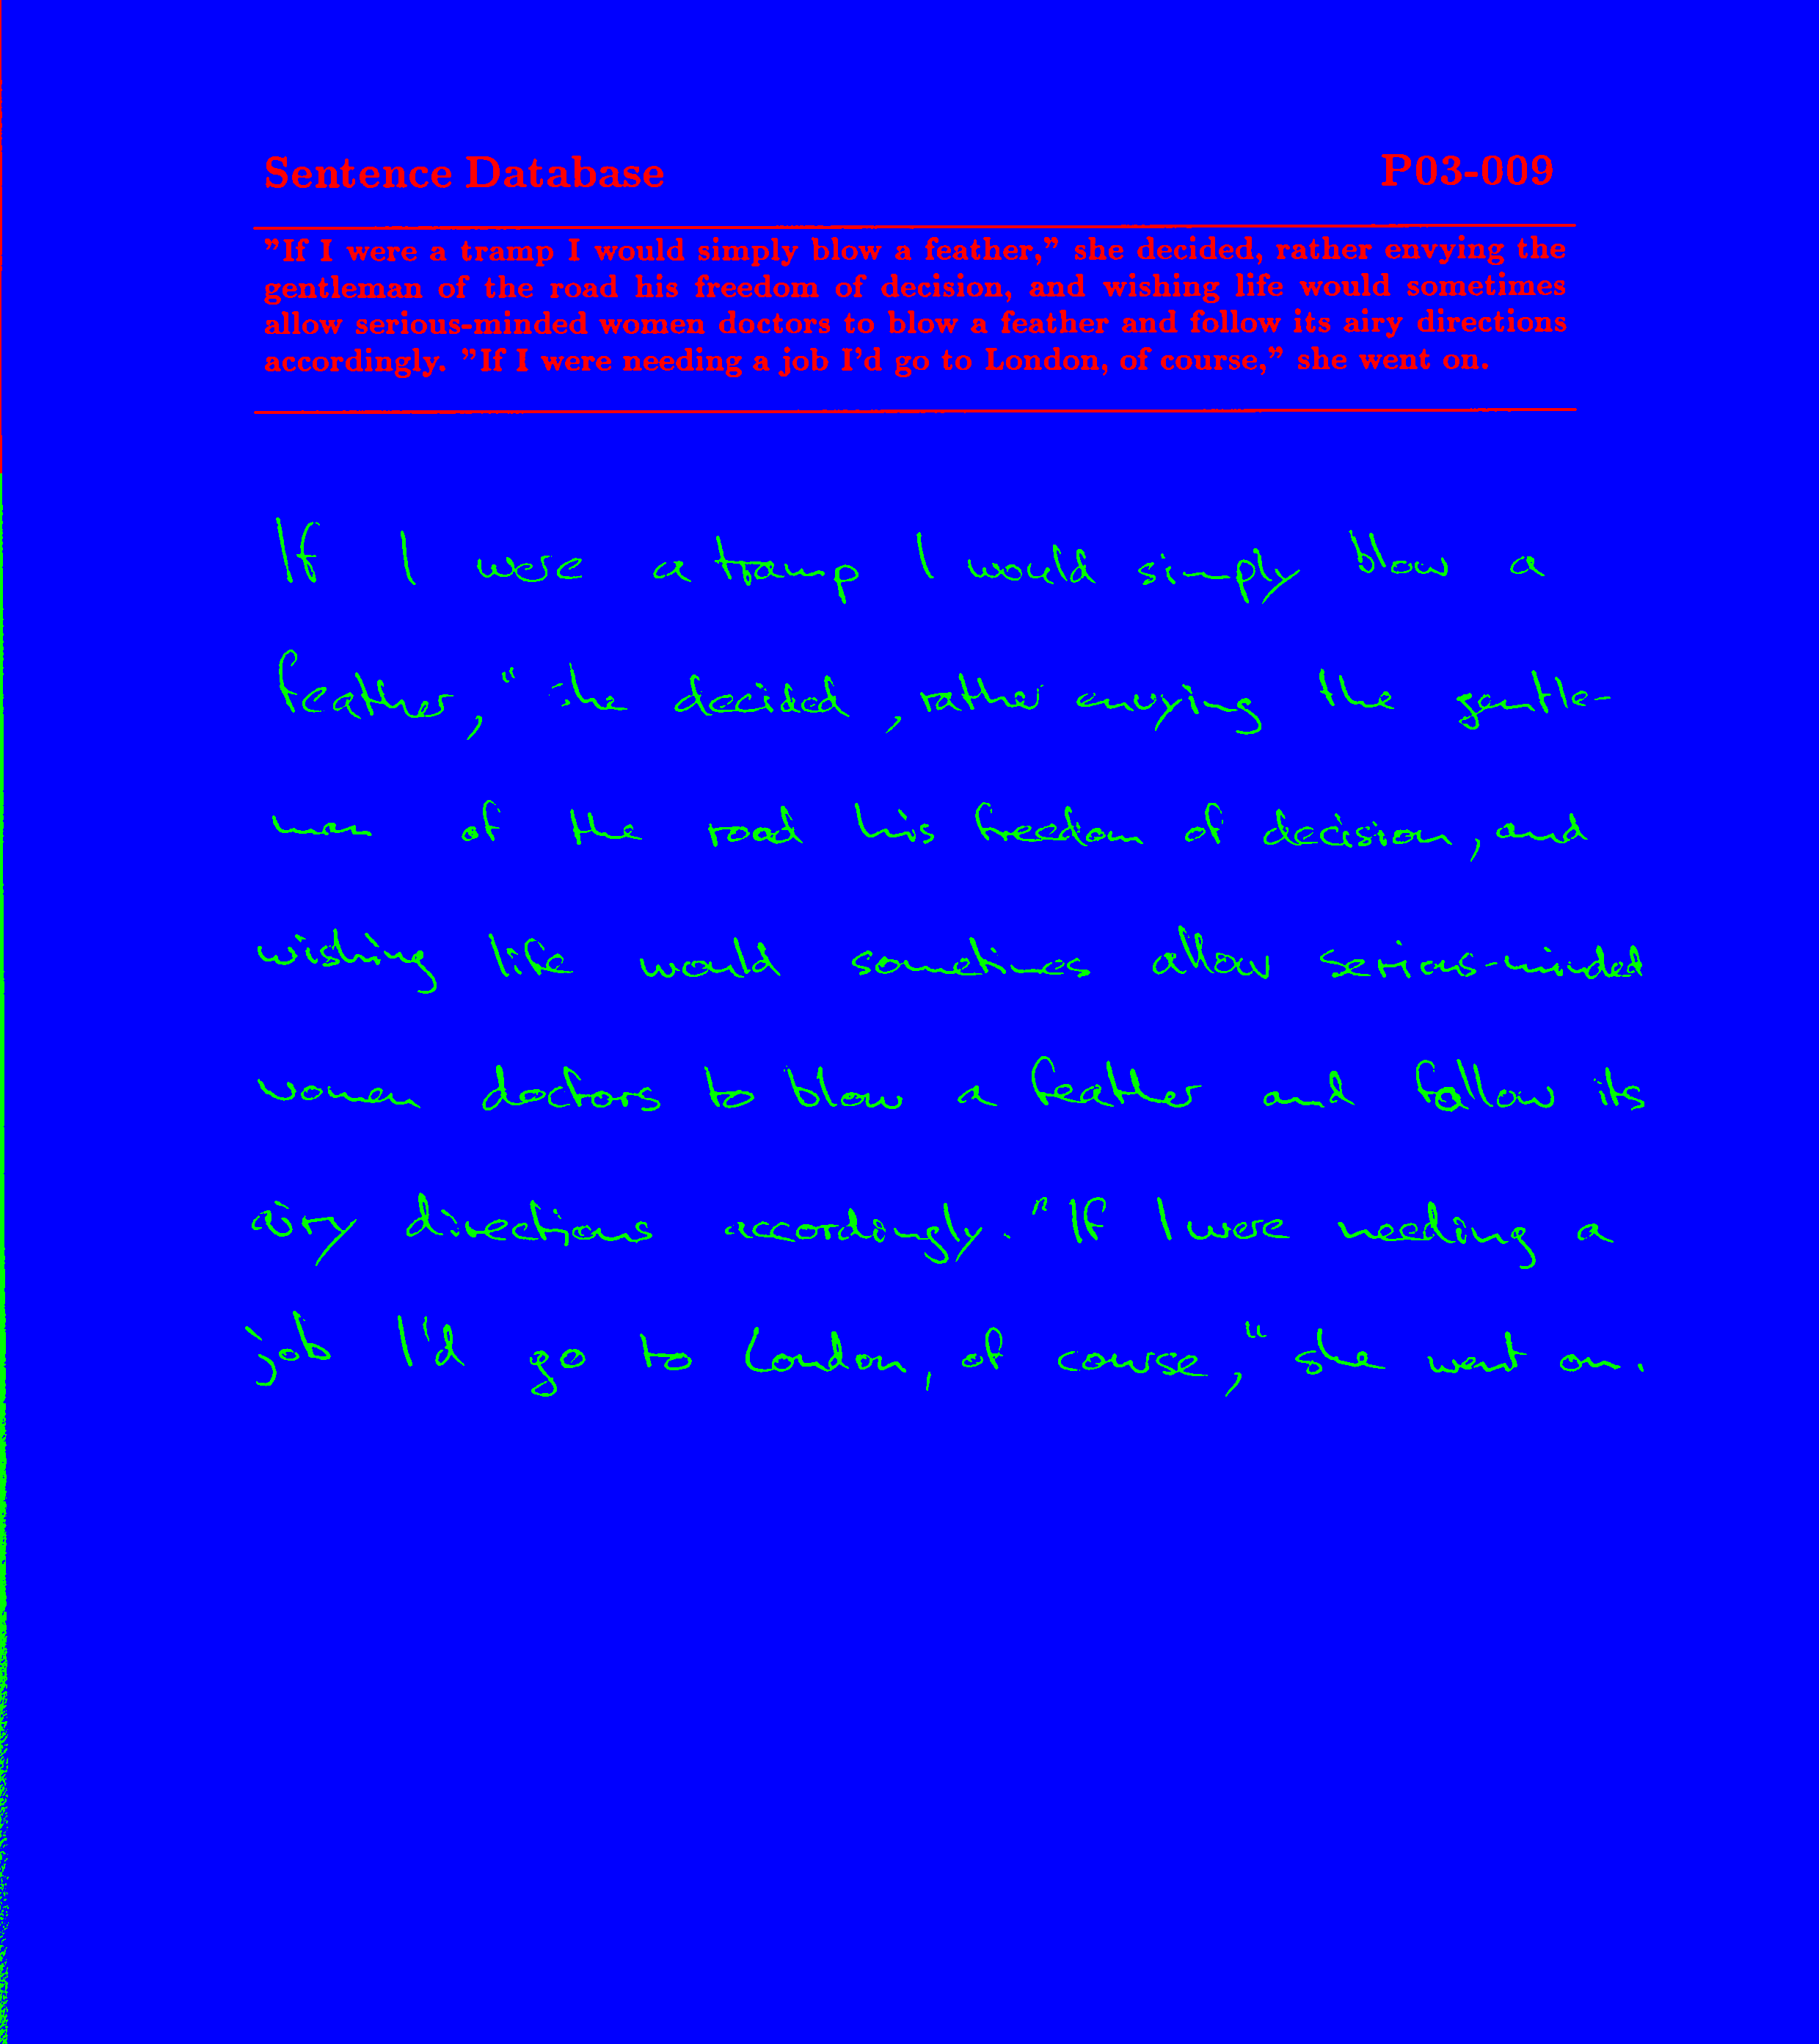 Sentence Database P03-009
"If I were a tramp I would simply blow a feather," she decided, rather envying the
gentleman of the road his freedom of decision, and wishing life would sometimes
allow serious-minded women doctors to blow a feather and follow its airy directions
accordingly. "If I were needing a job I'd go to London, of course," she went on.
If I were a tramp I would simply blow a
feather," she decided, rather envying the gentle-
man of the road his freedom of decision, and
wishing life would sometimes allow serious-minded
women doctors to blow a feather and follow its
airy directions accordingly. "If I were needing a
job I'd go to London, of course," she went on.